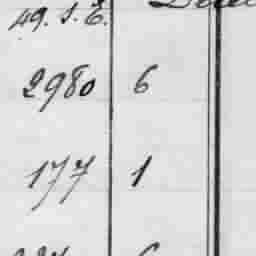 49. S. E.
2980 6
177 1